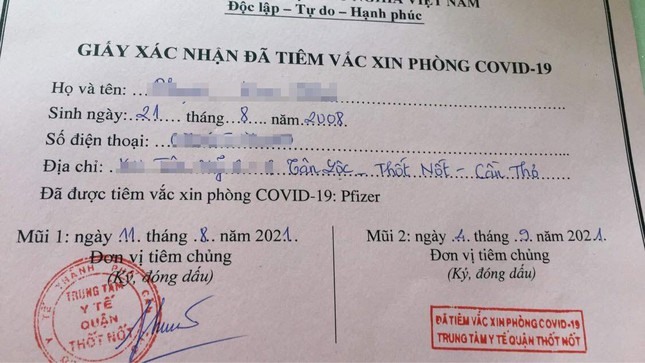 VIỆT NAM
Độc lập – Tự do – Hạnh phúc
GIẤY XÁC NHẬN ĐÃ TIÊM VẮC XIN PHÒNG COVID-19
Họ và tên:
Sinh ngày: 21 tháng 8 năm 2008
Số điện thoại:
Địa chỉ: Tân Lộc – Thốt Nốt – Cần Thơ
Đã được tiêm vắc xin phòng COVID-19: Pfizer
Mũi 1: ngày 11 tháng 8 năm 2021
Đơn vị tiêm chủng
(Ký, đóng dấu)
TRUNG TÂM
Y TẾ
QUẬN
THỐT NỐT
Mũi 2: ngày 4 tháng 9 năm 2021
Đơn vị tiêm chủng
(Ký, đóng dấu)
ĐÃ TIÊM VẮC XIN PHÒNG COVID-19
TRUNG TÂM Y TẾ QUẬN THỐT NỐT